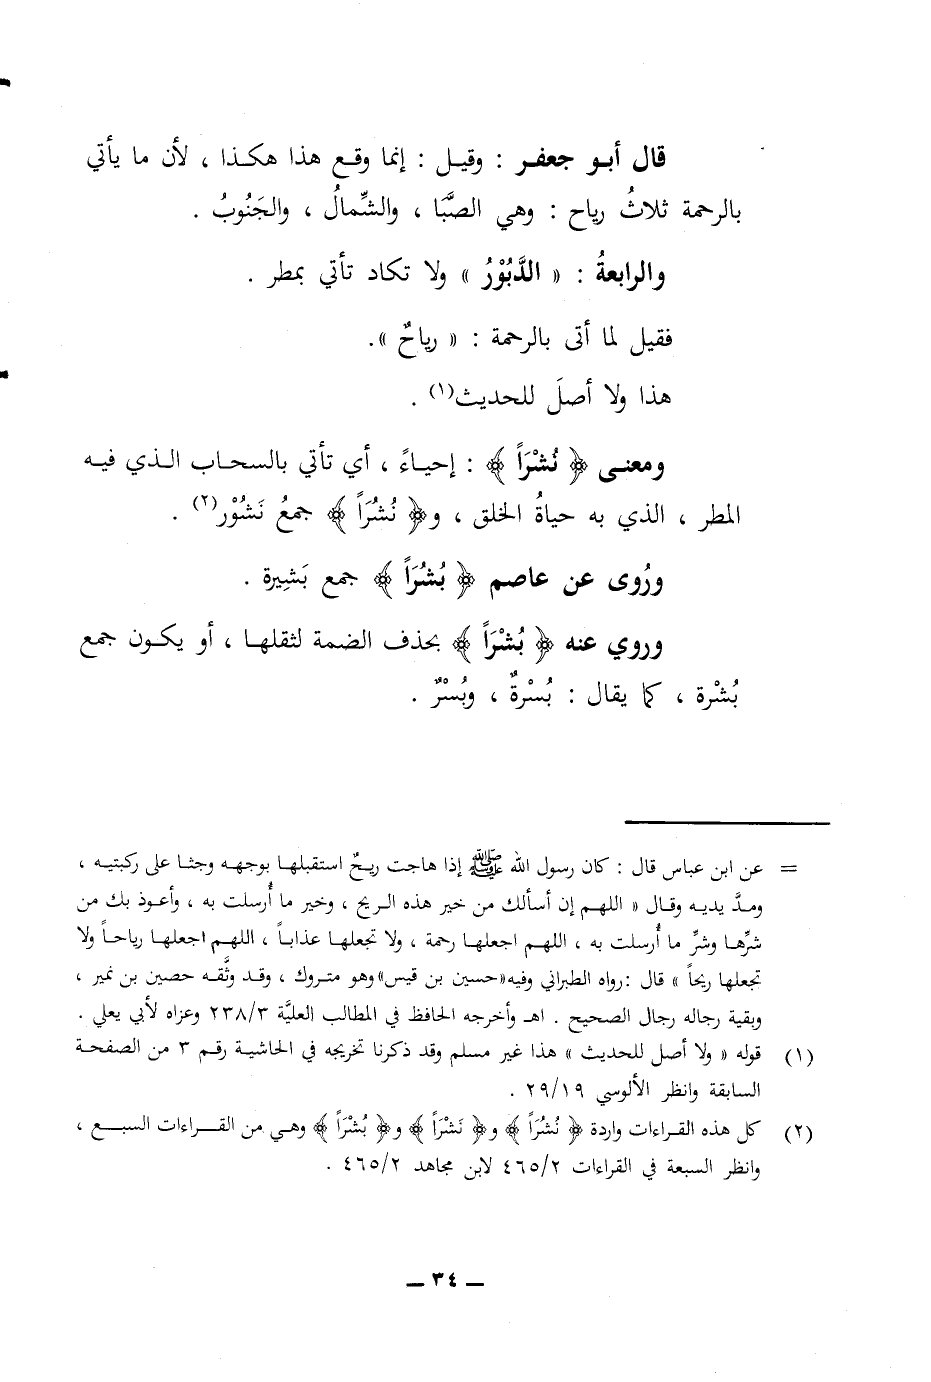 قال أبـو جعفـر : وقيـل : إنما وقـع هذا هكـذا ، لأن ما يأتي
بالرحمة ثلاثُ رياح : وهي الصَّبَا ، والشِّمالُ ، والجَنُوبُ .
والرابعةُ : « الدَّبُوْرُ » ولا تكاد تأتي بمطر .
فقيل لما أتى بالرحمة : « رياحٌ ».
هذا ولا أصلَ للحديث(١) .
ومعنـى ﴿ نُشْرَاً ﴾ : إحيـاءً ، أي تأتي بالسحاب الـذي فيـه
المطر ، الذي به حياةُ الخلق ، و﴿ نُشُرَاً ﴾ جمعُ نَشُوْر(٢) .
ورُوى عن عاصم ﴿ بُشُرَاً ﴾ جمع بَشِيرة .
وروي عنه ﴿ بُشْرَاً ﴾ بحذف الضمة لثقلهـا ، أو يكـون جمع
بُشْرة ، كما يقال : بُسْرةٌ ، وبُسْرٌ .
= عن ابن عباس قال : كان رسول الله ﷺ إذا هاجت ريـحٌ استقبلهـا بوجهـه وجثـا على ركبتيـه ،
ومدَّ يديـه وقـال « اللهـم إن أسألك من خير هذه الـريح ، وخير ما أُرسلت به ، وأعوذ بك من
شرِّهـا وشرِّ ما أُرسلت به ، اللهـم اجعلهـا رحمة ، ولا تجعلهـا عذابـاً ، اللهـم اجعلهـا رياحـاً ولا
تجعلهـا ريحاً » قال :رواه الطبراني وفيه«حسين بن قيس»وهو متـروك ، وقـد وثَّقـه حصين بن نمير ،
وبقية رجاله رجال الصحيح . اهـ وأخرجه الحافظ في المطالب العليَّة ٢٣٨/٣ وعزاه لأبي يعلي .
(١) قوله « ولا أصل للحديث » هذا غير مسلم وقد ذكرنا تخريجه في الحاشيـة رقـم ٣ من الصفحـة
السابقة وانظر الألوسي ٢٩/١٩ .
(٢) كل هذه القـراءات واردة ﴿ نُشُرَاً ﴾ و﴿ نَشْرَاً ﴾ و﴿ بُشْرَاً ﴾ وهـي من القـراءات السبـع ،
وانظر السبعة في القراءات ٤٦٥/٢ لابن مجاهد ٤٦٥/٢ .
ـ ٣٤ ـ